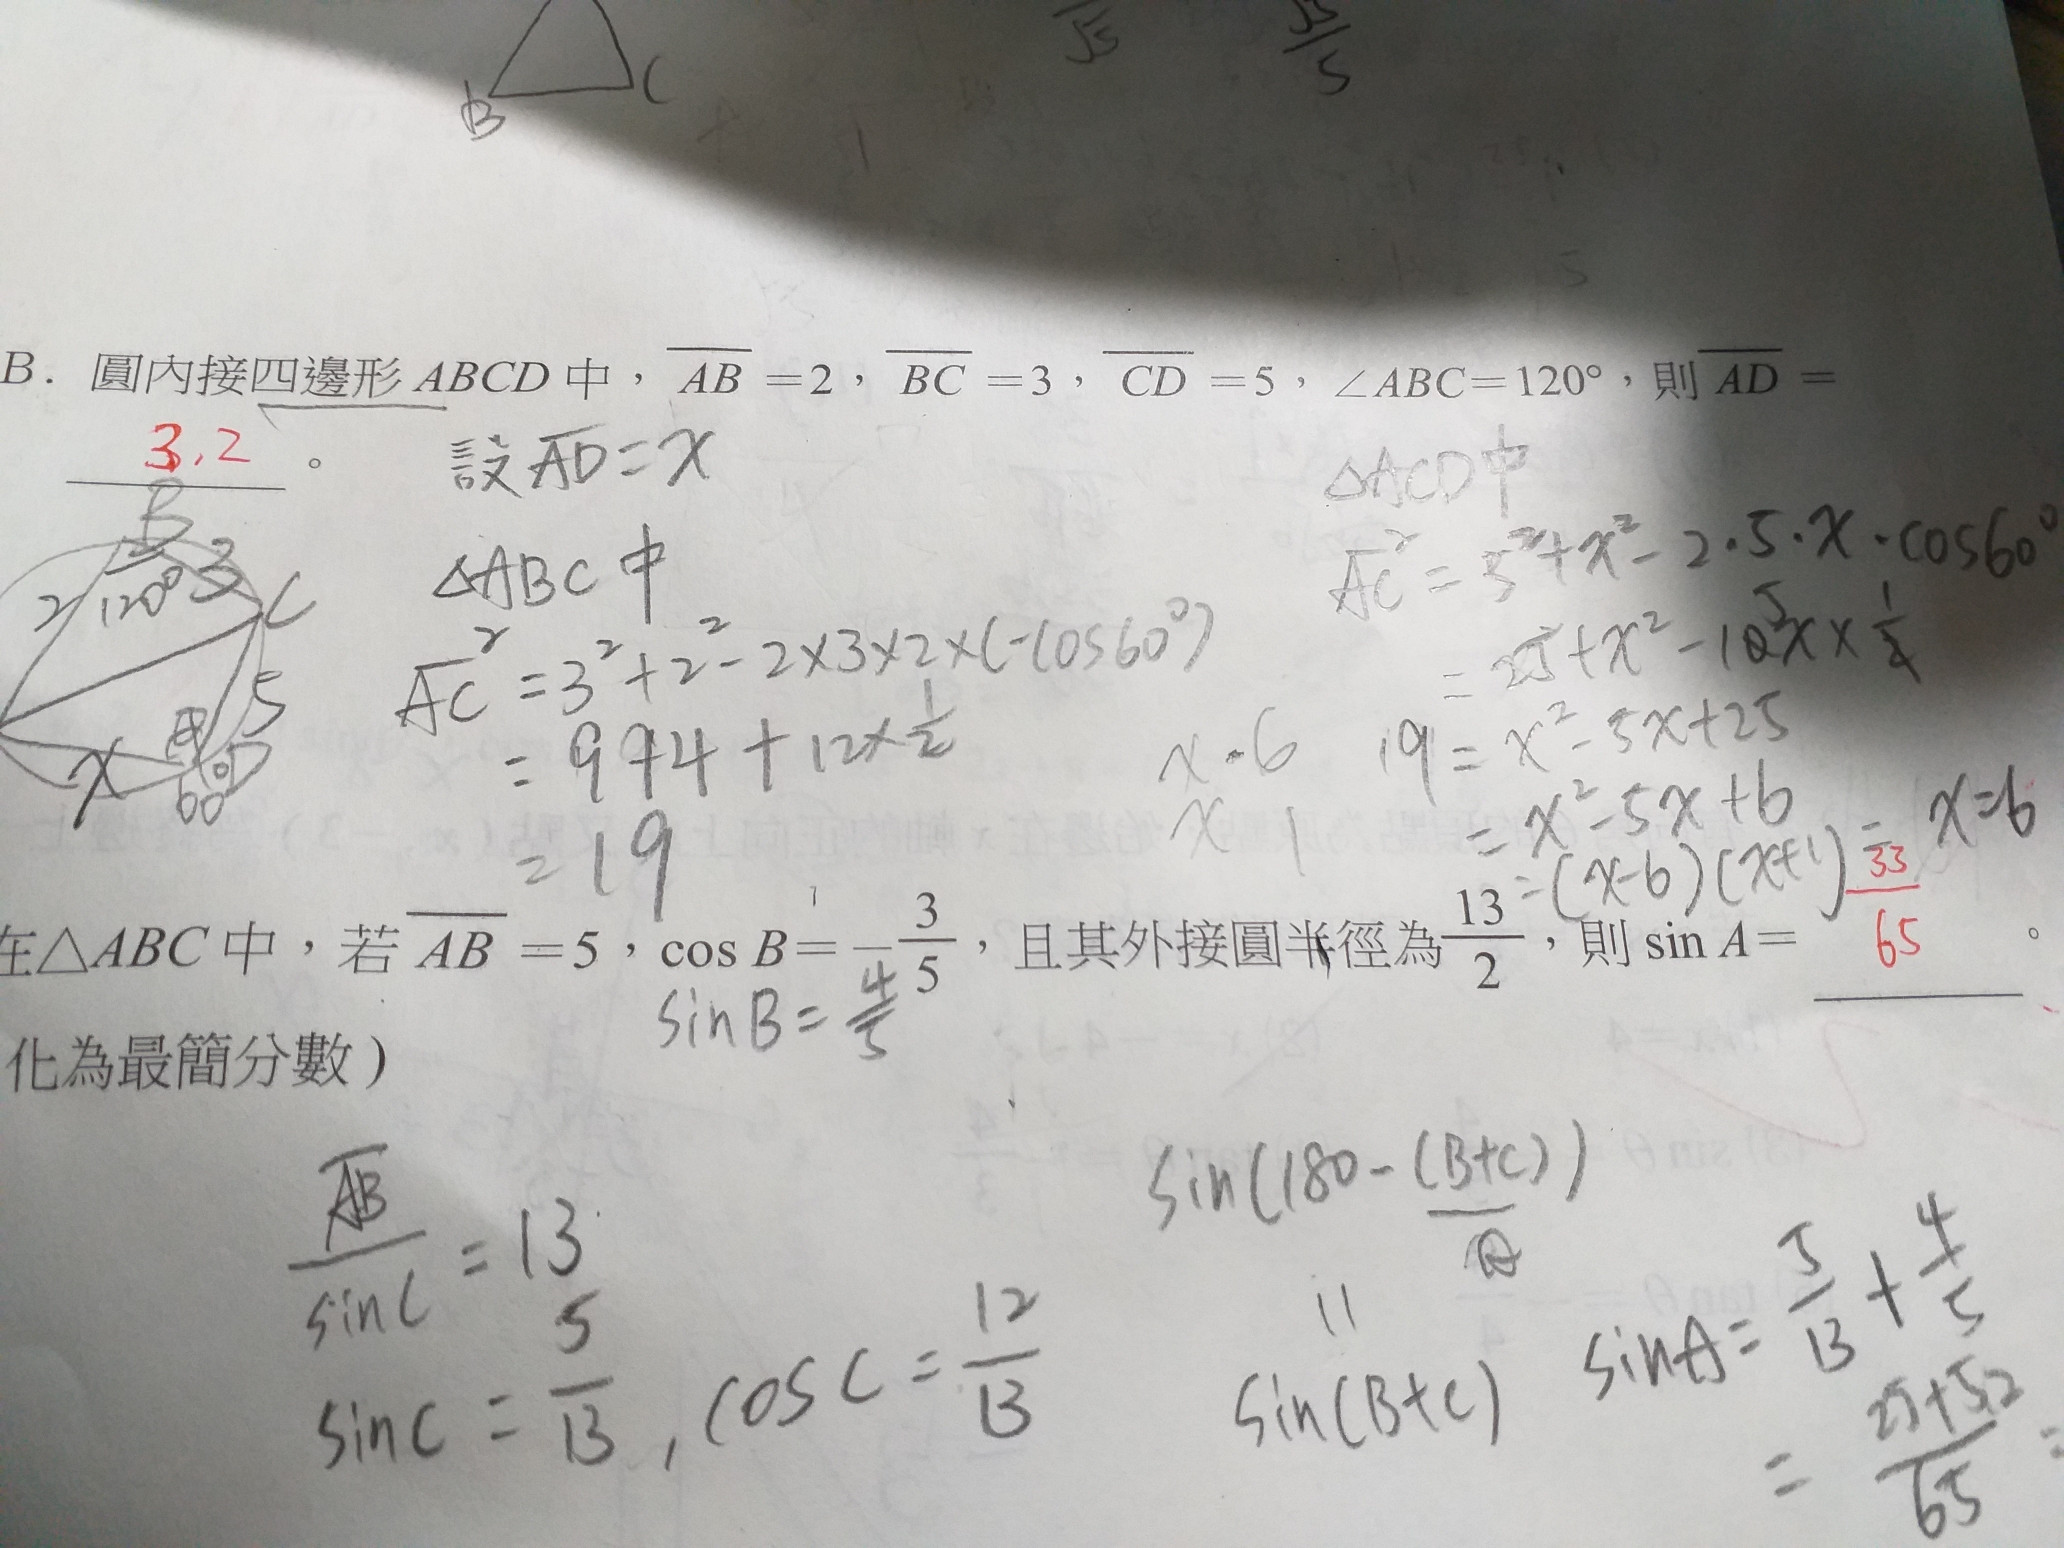 B C
√5 √3/5
B. 圓內接四邊形 ABCD 中, AB =2, BC =3, CD =5, ∠ABC=120°,則 AD =
3.2 。
設 AD = x
△ACD中
B
2 120° 3 C
5
x
60° D
△ABC 中
AC² = 3²+2²-2×3×2×(-cos60°)
= 9+4+12×1/2
= 19
AC² = 5²+x²-2·5·x·cos60°
= 25+x²-10x×1/2
19 = x²-5x+25
= x²-5x+6
=(x-6)(x+1) = x=6
x -6
x 1
在△ABC 中,若 AB =5,cos B=-3/5,且其外接圓半徑為 13/2,則 sin A= 33/65 。
sinB = 4/5
化為最簡分數)
AB/sinC = 13
sinC = 5/13 , cosC = 12/13
sin(180-(B+C))
=
sin(B+C)
sinA = 5/13 + 4/5
= 25+52/65 =